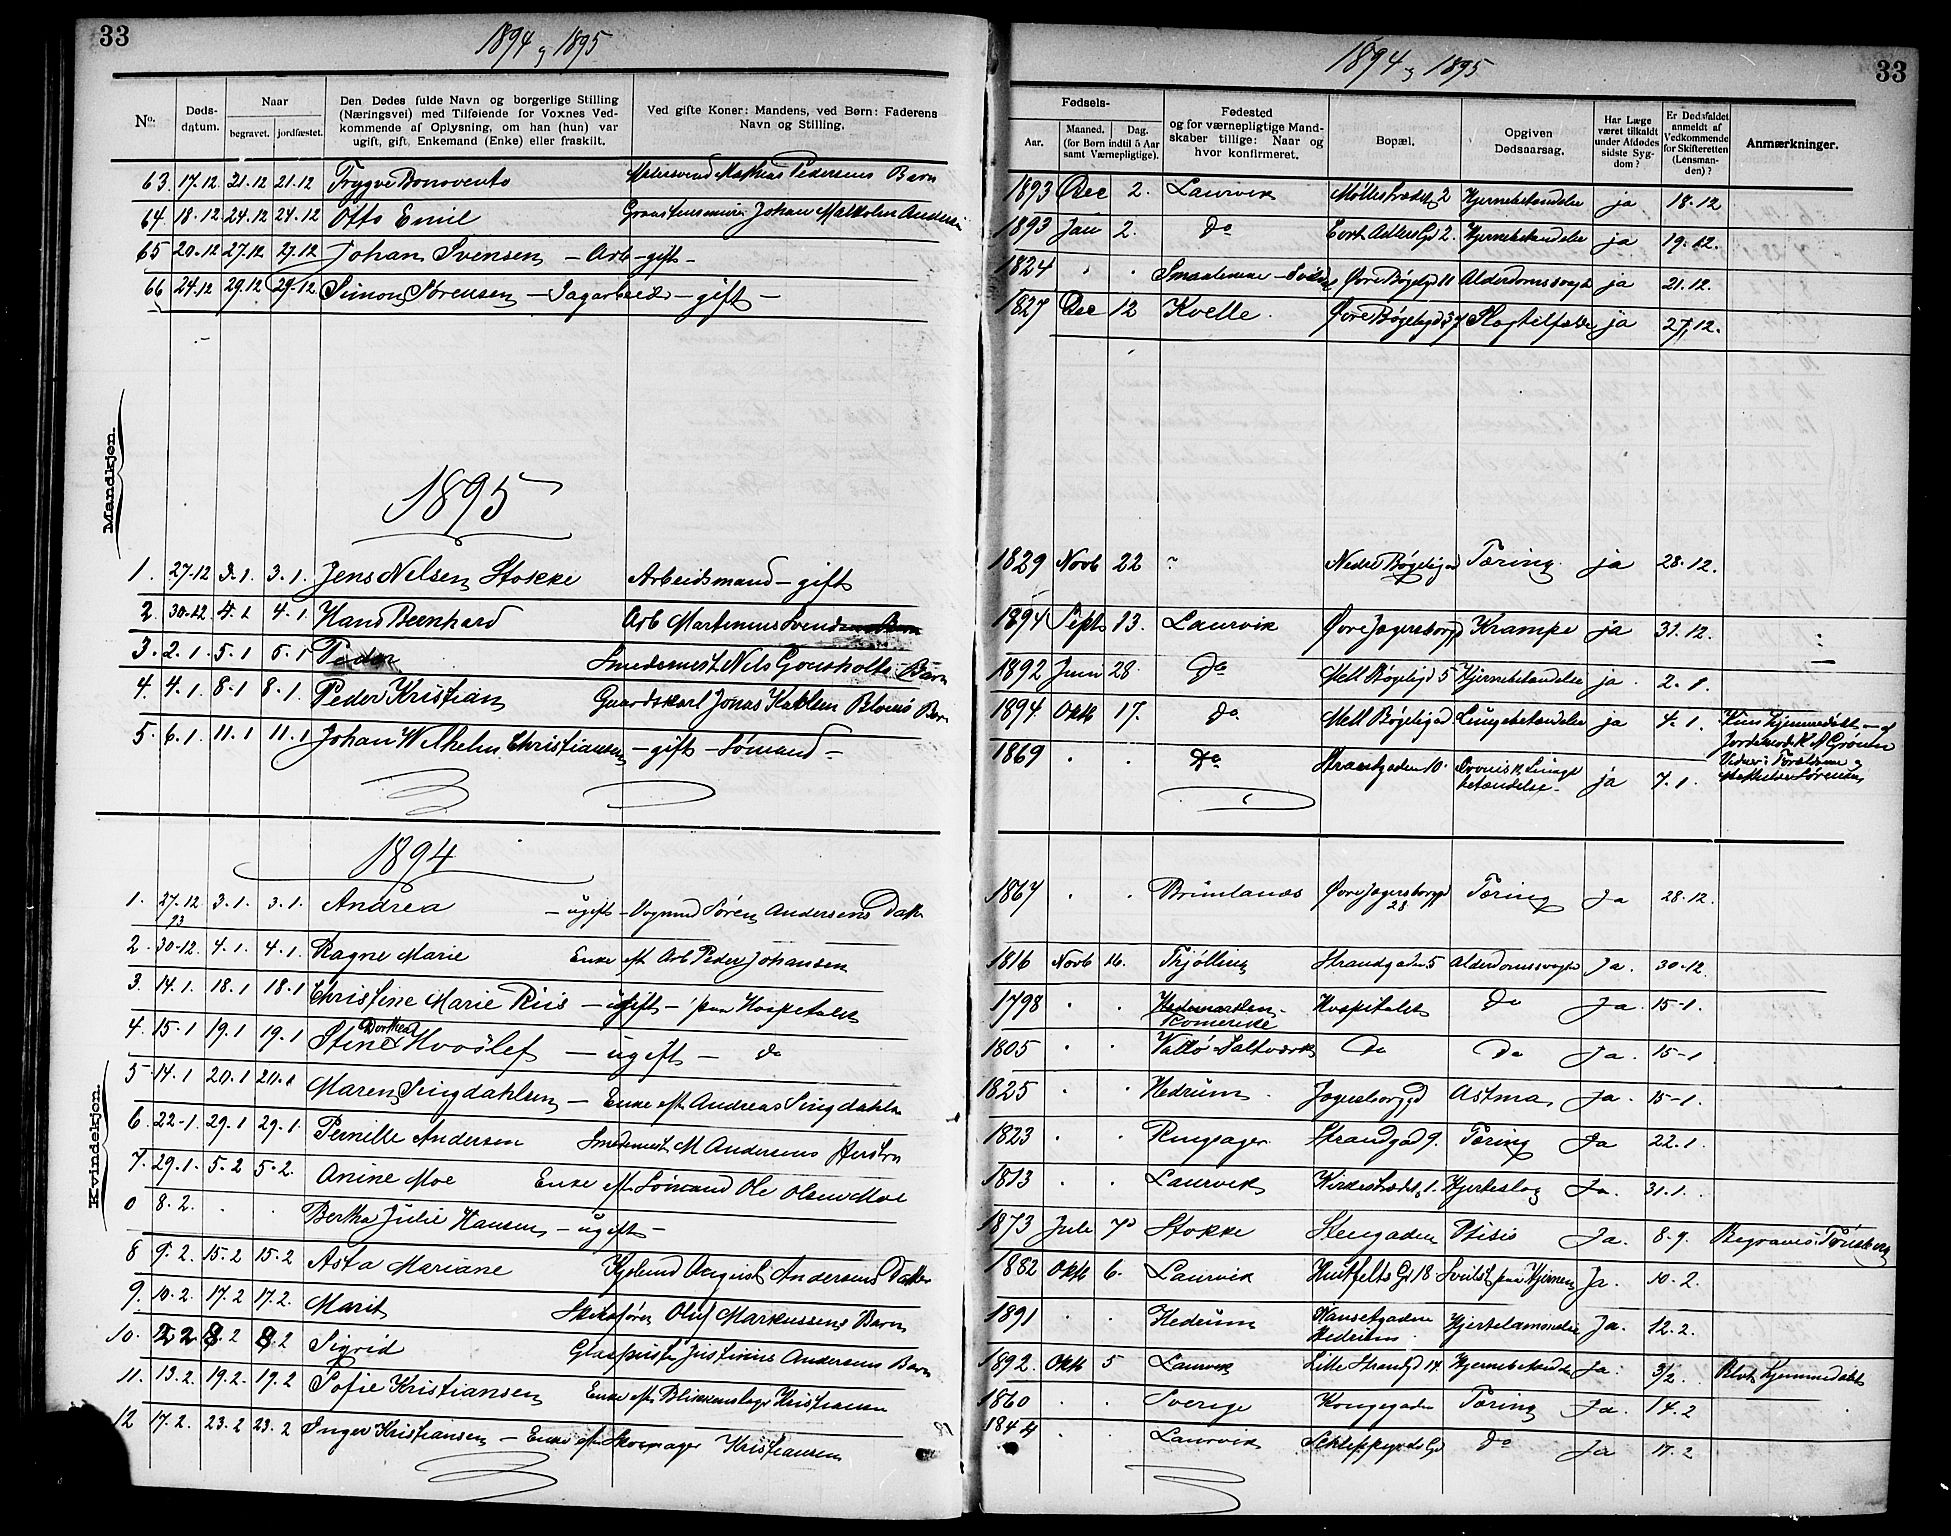 33
1894 og 1895
No.
Døds-
datum.
Naar
begravet. jordfæstet.
Den Dødes fulde Navn og borgerlige Stilling
(Næringsvei) med Tilføiende for Voxnes Ved-
kommende af Oplysning, om han (hun) var
ugift, gift, Enkemand (Enke) eller fraskilt.
Ved gifte Koner: Mandens, ved Børn: Faderens
Navn og Stilling.
63. 17.12 21.12 21.12 Trygve Bonovento Mathias Pedersens Barn
64. 18.12 24.12 24.12 Otto Emil Johan Malkolm Andersen
65 20.12 27.12 27.12 Johan Svensen – Arb – gift –
66 24.12 29.12 29.12 Simon Sørensen – Sagarbeid – gift –
Mandkjøn.
1895
1. 27-12 3-1. 3.1. Jens Nilsen Stokke Arbeidsmand – gift
2. 30-12 4.1 4.1 Hans Bernhard Arb Martinius Svendsens Barn
3. 2.1 5.1 5.1 Peder Smedemest Nils Gonsholts Barn
4. 4.1 8.1 8.1. Peder Kristian Gaardskarl Jonas Barn
5. 6.1. 11.1 11.1 Johan Wilhelm Christiansen – gift – Sømand –
1894
1. 27.12 /93 3.1. 3.1. Andrea – ugift – Vognmd Søren Andersens Datter
2. 30-12. 4.1 4.1. Ragne Marie Enke eft Arb Peder Johansen
3. 14.1. 18.1 18.1 Christine Marie Riis – ugift – paa Hospitalet
4. 15.1 19.1 19.1 Stine Dorthea Hvoslef – ugift – do
Kvindekjøn.
5 14.1 20.1 20.1 Maren Singdahlsen – Enke eft Andreas Singdahlsen
6. 22-1. 29.1 29.1. Pernille Andersen Smedemest M Andersens Hustru
7. 29.1. 5.2 5.2. Anine Moe Enke eft Sømand Ole Olsen Moe
0 8.2. . . Bertha Julie Hansen – ugift –
8 9.2 15.2 15.2 Asta Mariane August Andersens Datter
9. 10.2. 17.2 17.2. Marit Skibsfører Oluf Markussens Barn
10. 2.2 8.2 8.2 Sigrid Glaspuster Justinius Andersens Barn
11. 13.2. 19.2. 19.2 Sofie Kristiansen Enke eft Blikkenslager Kristiansen
12 17.2. 23.2 23.2 Inger Kristiansen – Enke eft Skomager Kristiansen
1894 og 1895
33
Fødsels-
Aar.
Maaned. Dag.
(for Børn indtil 5 Aar
samt Værnepligtige).
Fødested
og for værnepligtige Mand-
skaber tillige: Naar og
hvor konfirmeret.
Bopæl.
Opgiven
Dødsaarsag.
Har Læge
været tilkaldt
under Afdødes
sidste Syg-
dom?
Er Dødsfaldet
anmeldt af
Vedkommende
for Skifteretten
(Lensman-
den)?
Anmærkninger.
1893 Dec 2. Laurvik Møllestrædet 2 Hjernebetændelse ja 18.12
1893 Jan 2. do Cort Adlers Gd 2. Hjernebetændelse ja 19.12.
1824 . . Smaalenene Øvre Bøgeligd 11 Alderdomssvagh ja 21.12.
1827 Dec 12 Kvelle. Øvre Bøgeligd 37 Slagtilfælde ja 27.12.
1829 Novb 22 Nedre Bøgeligd Tæring. ja 28.12.
1894 Septb 13. Laurvik Øvre Jegersborggd Krampe ja 31.12.
1892 Juni 28. do Mell Bøgeligd 5 Hjernebetændelse ja. 2.1.
1894 Oktb 17. do Mell Bøgeligd Lungebetændelse ja 4.1. Kun hjemmedøbt af
Jordemoder
1869 . . do Strandgaden 10. Cronisk Lunge
betændelse. ja 7.1.
1867 . . Brunlanæs Øvre Jegersborggd
28 Tæring Ja 28.12.
1816 Novb 16. Tjølling Strandgaden 5 Alderdomssvagh Ja. 30.12.
1798 . . Hedemarken
Romerike Hospitalet do Ja. 15-1.
1805 . . Vallø Saltværk Do Do Ja. 15-1
1825 . . Hedrum Jegersborggd Astma Ja. 15-1.
1823 . . Ringsager Strandgad 9. Tæring Ja 22.1.
1813 . . Laurvik Kirkestrædet 1. Hjerteslag Ja. 31.1.
1873 Jule 7 Stokke Stengaden Ptisis Ja. 8.9. Begraves i Tønsberg
1882 Oktb 6. Laurvik Huitfelts Gd 18 Svulst paa Hjernen Ja. 10.2.
1891 . . Hedrum Hansetgadene
Hedrum Ja. 12.2.
1892. Oktb 5 Laurvik Lille Strandgd 14. Hjernebetændelse Ja. 3/2. Blot hjemmedøbt
1860 . . Sverige Kongegaden Tæring Ja. 14.2
1844 . . Laurvik do Ja 17.2